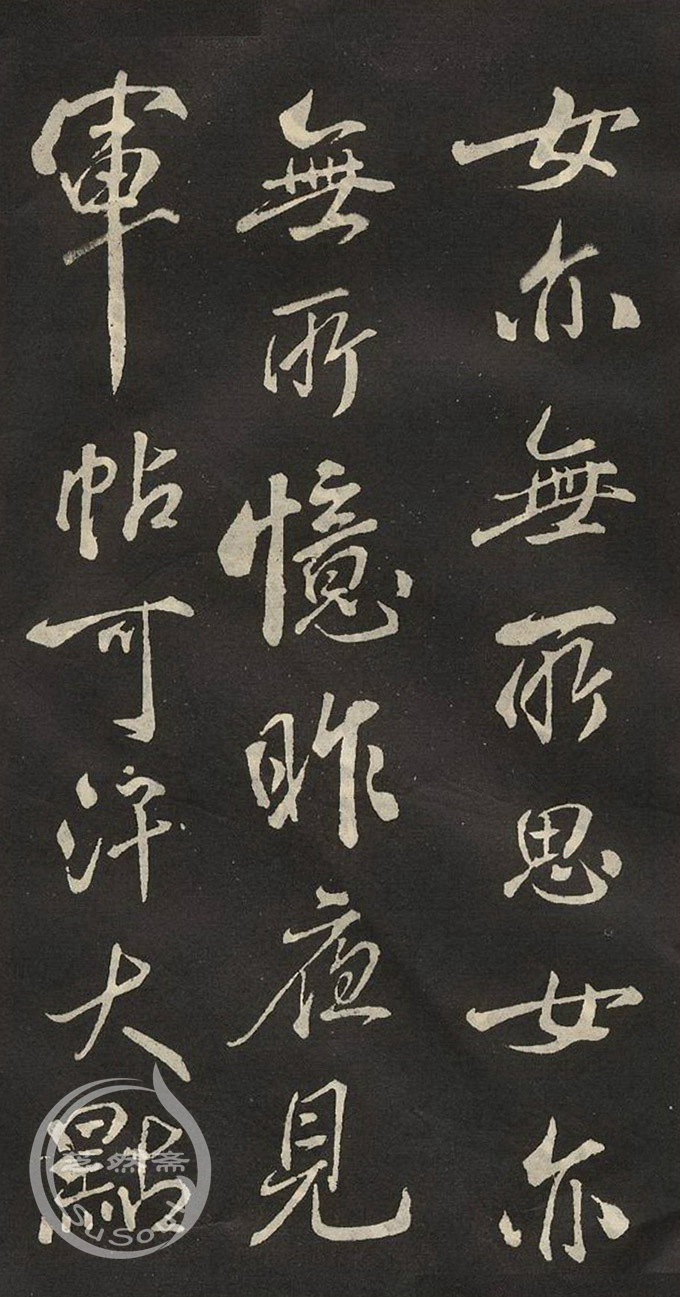 女亦無所思女亦
無所憶昨夜見
軍帖可汗大點
然斋